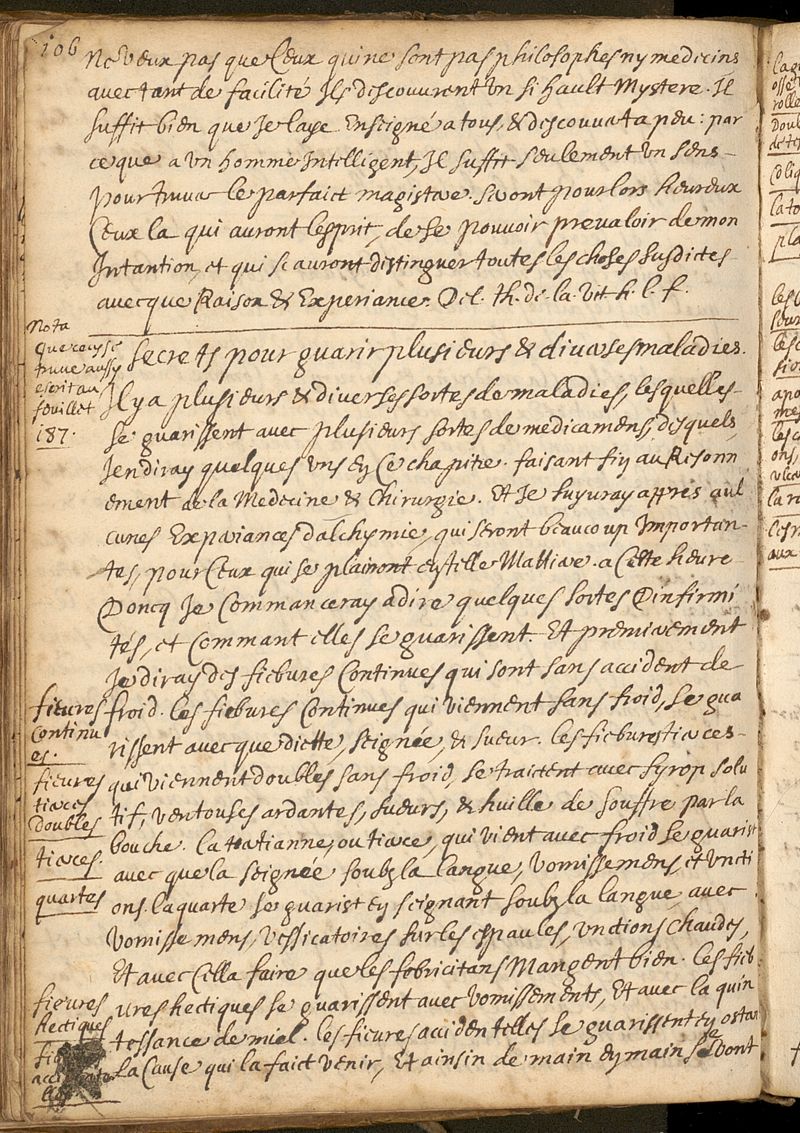 106
ne veux pas que Ceux qui ne sont pas philosophes ny medecins
avec tant de facilité Ils descouvrent Un si hault Mystere. Il
suffit bien que Je laye Enseigné a tous, & descouvert a peu: par
ce que a Un homme Intelligent, Il suffit seulement Un sens
pour truver le parfaict magistere. seront pour lors heureux
Ceux la qui auront lesprit, de se pouvoir prevaloir de mon
Intantion, et qui scauront distinguer toutes les choses susdictes
avecque Raison & Experiance. Del. th. de. la. vit h. l. f.
Nota
que cecy se
truve aussy
escrit au
feuillet
187.
Secrets pour guarir plusieurs & diverses maladies.
Il y a plusieurs & diverses sortes de maladies, lesquelles
se guarissent avec plusieurs sortes de medicamens, desquels
Jen diray quelques uns en Ce chapitre. faisant fin au Resonn
ement de la Medecine & Chirurgie. Et Je suyuray apres aul
cunes Experiances dalchymie, qui seront beaucoup Importan-
tes, pour Ceux qui se plairont en telle Mattiere. a Cette heure
Doncq Je Commanceray a dire quelques sortes Dinfirmi
tés, et Commant elles se guarissent. Et premierement
Je diray des fiebures Continues qui sont sans accident de
froid. Les fiebures Continues qui viennent sans froid, se gua
rissent avecque diette, seignée, & sueur. Les fiebures tierces
qui viennent doubles sans froid, se traictent avec syrop solu
tif, ventouses ardantes, sueurs, & huille de souffre par la
bouche. La tertianne, ou tierce, qui vient avec froid se guarist
avec que la seignée soubz la langue, vomissemens, et uncti
ons. La quarte se guarist en seignant soubz la langue, avec
vomissemens, vessicatoires sur les espaules, unctions chaudes,
Et avec Cella faire que les febricitans Mangent bien. Les fieb
ures hectiques se guarissent avec vomissements, Et avec la quin
tessance de miel. Les fieures accidentelles se guarissent en ostan
La Cause qui la faict venir, Et ainsin de main en main se vont
fieures
Continu
es.
fieures
tierces
doubles
tierces.
quartes
fieures
hectiques